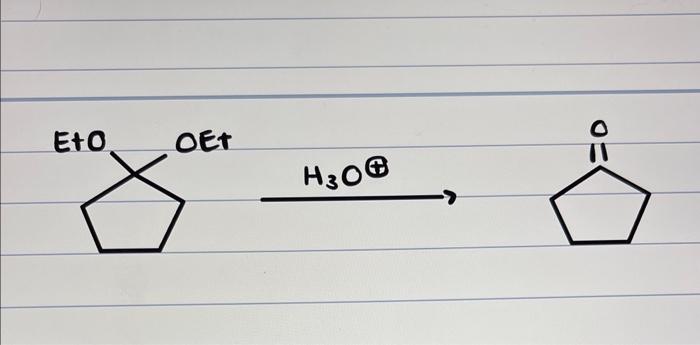 EtO OEt
H₃O⊕
O